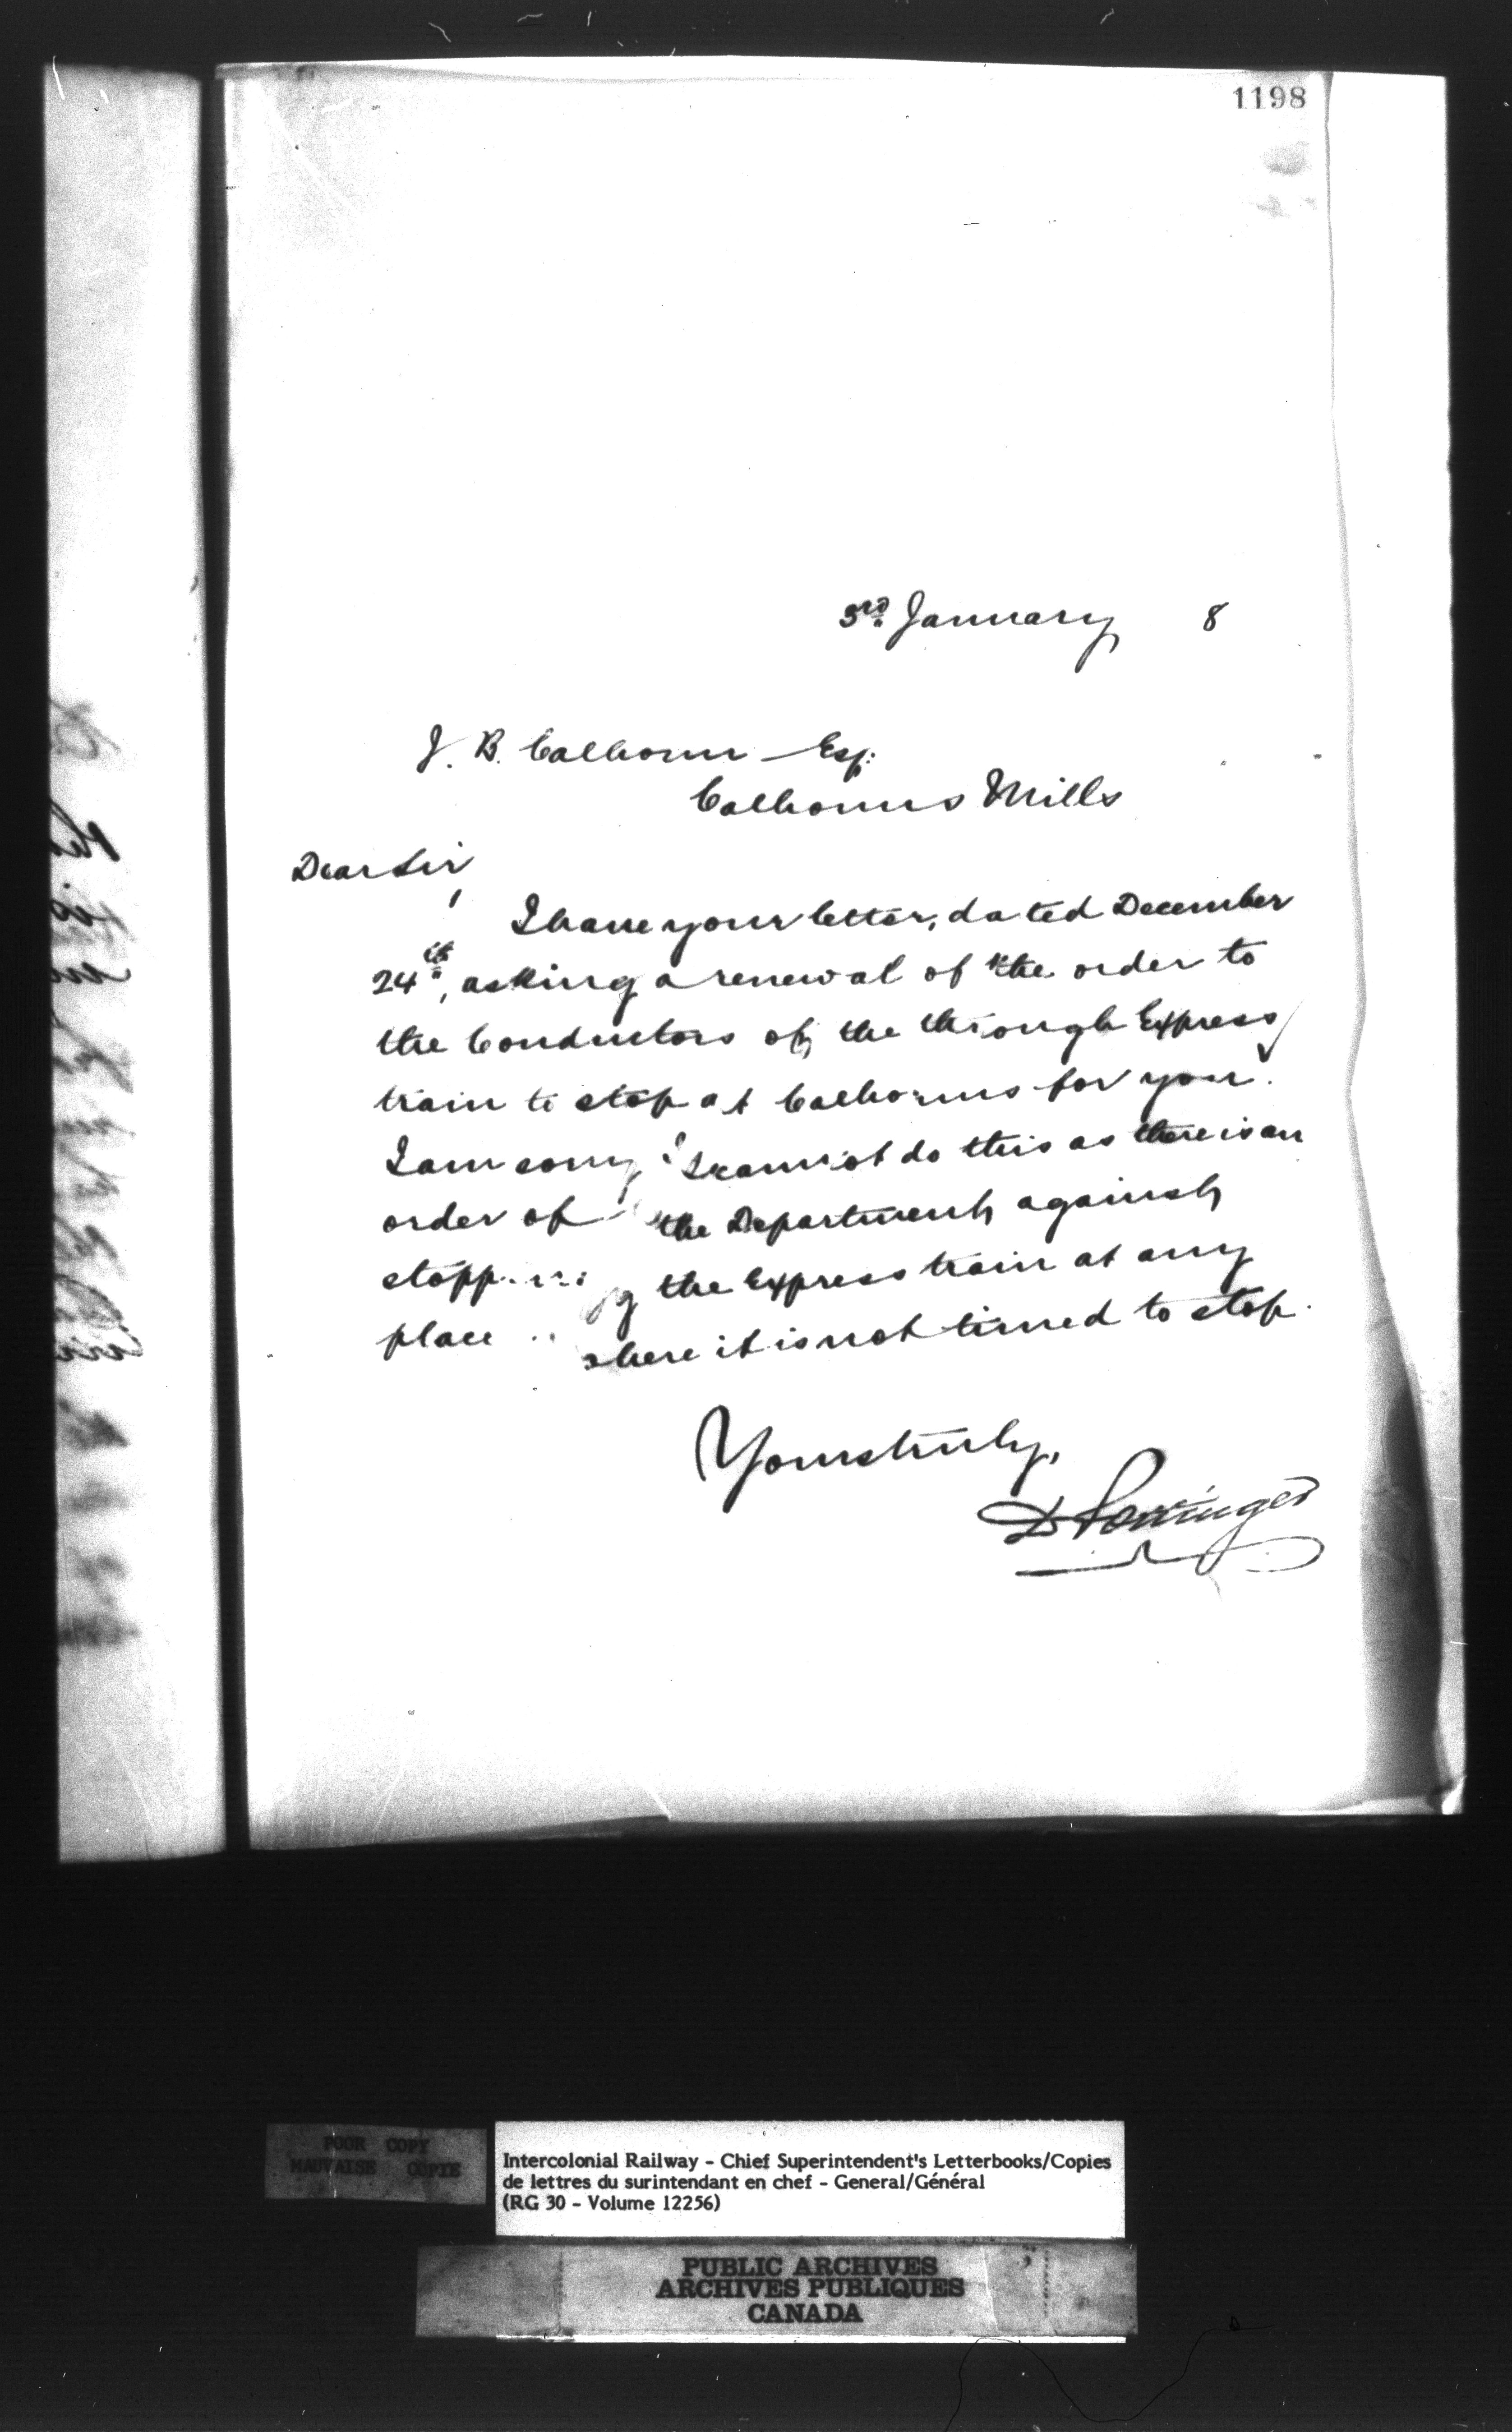 1198
3rd January 8
J. B. Calhoun Esq:
Calhouns Mills
Dear Sir,
I have your letter, dated December
24th, asking a renewal of the order to
the Conductors of the through Express
train to stop at Calhouns for you.
I am sorry I cannot do this as there is an
order of the Department against
stopping the Express train at any
place where it is not timed to stop.
Yours truly,
D Pottinger
POOR COPY
MAUVAISE COPIE
Intercolonial Railway - Chief Superintendent's Letterbooks/Copies
de lettres du surintendant en chef - General/Général
(RG 30 - Volume 12256)
PUBLIC ARCHIVES
ARCHIVES PUBLIQUES
CANADA